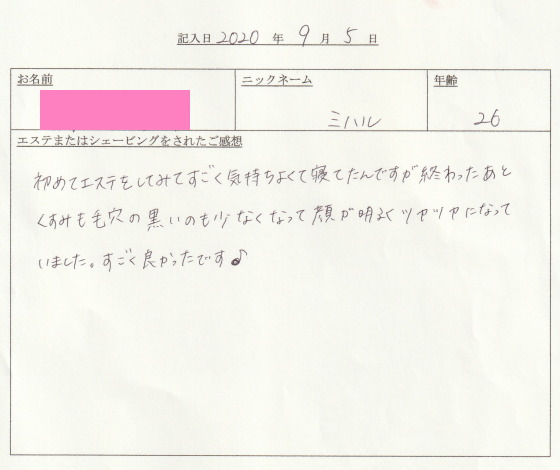 記入日 2020 年 9 月 5 日
お名前 ニックネーム 年齢
ミハル 26
エステまたはシェービングをされたご感想
初めてエステをしてみてすごく気持ちよくて寝てたんですが終わったあと
くすみも毛穴の黒いのも少なくなって顔が明るくツヤツヤになって
いました。すごく良かったです♪